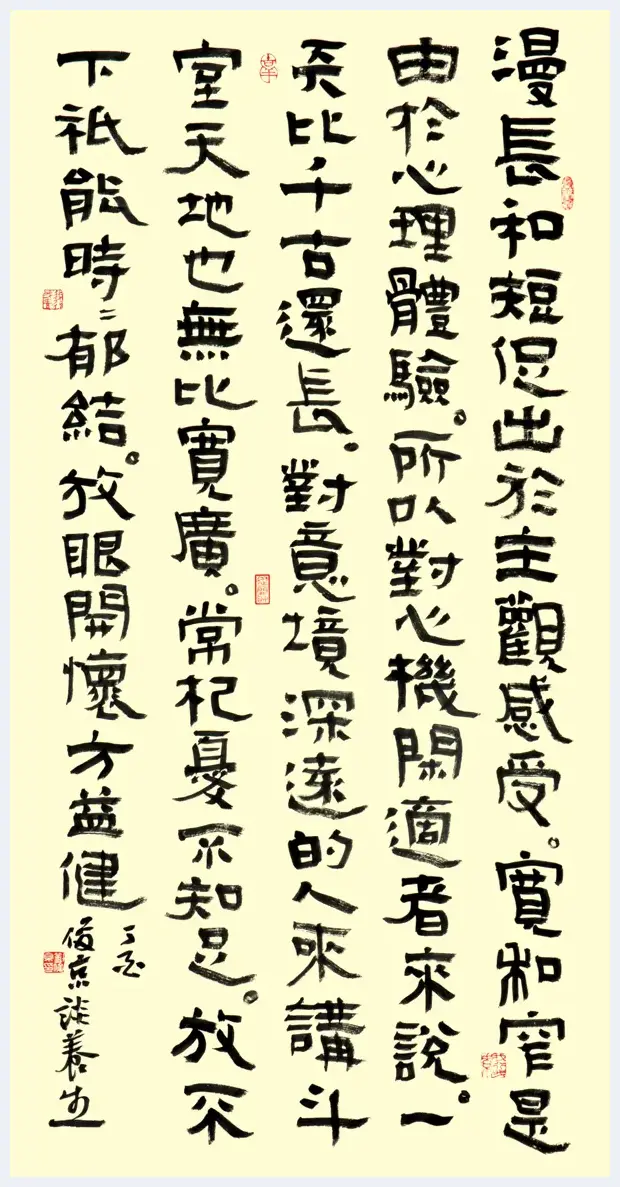 漫長和短促出於主觀感受。寬和窄是
由於心理體驗。所以對心機閑適者來說。一
天比千古還長。對意境深遠的人來講斗
室天地也無比寬廣。常杞憂不知足。放不
下祇能時〻郁結。放眼開懷方益健
丁酉
俊京談養生